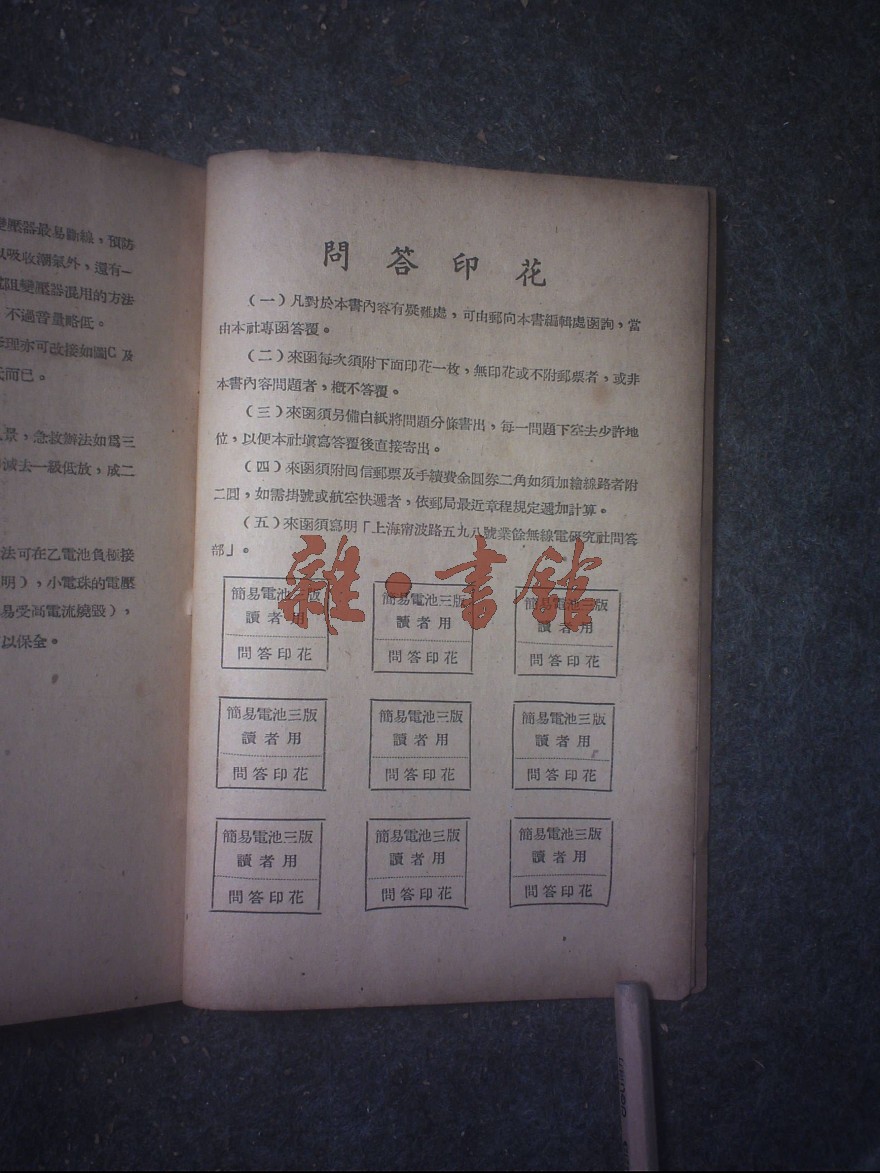 變壓器最易斷線，預防
以吸收潮氣外，還有一
電阻變壓器混用的方法
，不過音量略低。
理亦可改接如圖C及
式而已。
景，急救辦法如爲三
減去一級低放，成二
法可在乙電池負極接
明），小電珠的電壓
易受高電流燒毀），
以保全。
問答印花
（一）凡對於本書內容有疑難處，可由郵向本書編輯處函詢，當
由本社專函答覆。
（二）來函每次須附下面印花一枚，無印花或不附郵票者，或非
本書內容問題者，概不答覆。
（三）來函須另備白紙將問題分條書出，每一問題下空去少許地
位，以便本社塡寫答覆後直接寄出。
（四）來函須附囘信郵票及手續費金圓券二角如須加繪線路者附
二圓，如需掛號或航空快遞者，依郵局最近章程規定遞加計算。
（五）來函須寫明「上海甯波路五九八號業餘無線電硏究社問答
部」。
雜·書館
簡易電池三版
讀者用
問答印花
簡易電池三版
讀者用
問答印花
簡易電池三版
讀者用
問答印花
簡易電池三版
讀者用
問答印花
簡易電池三版
讀者用
問答印花
簡易電池三版
讀者用
問答印花
簡易電池三版
讀者用
問答印花
簡易電池三版
讀者用
問答印花
簡易電池三版
讀者用
問答印花